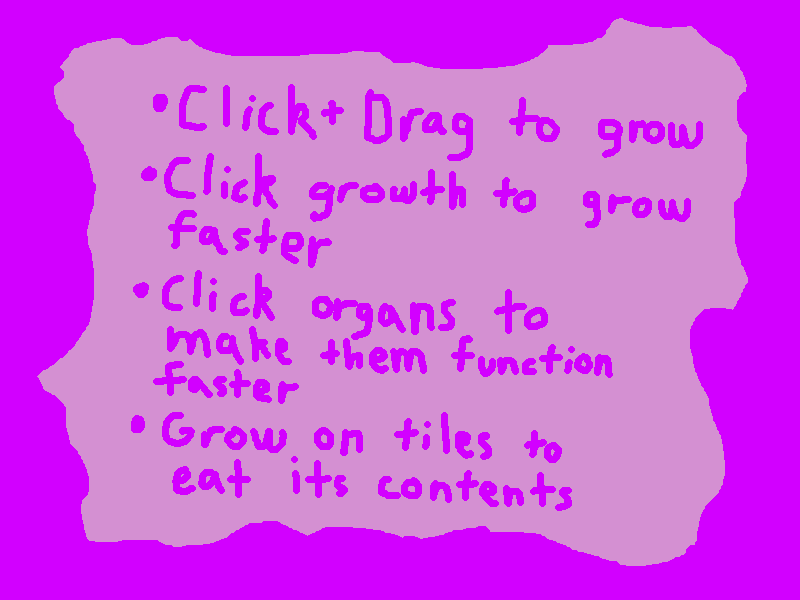 • Click+ Drag to grow
• Click growth to grow
faster
• Click organs to
make them function
faster
• Grow on tiles to
eat its contents